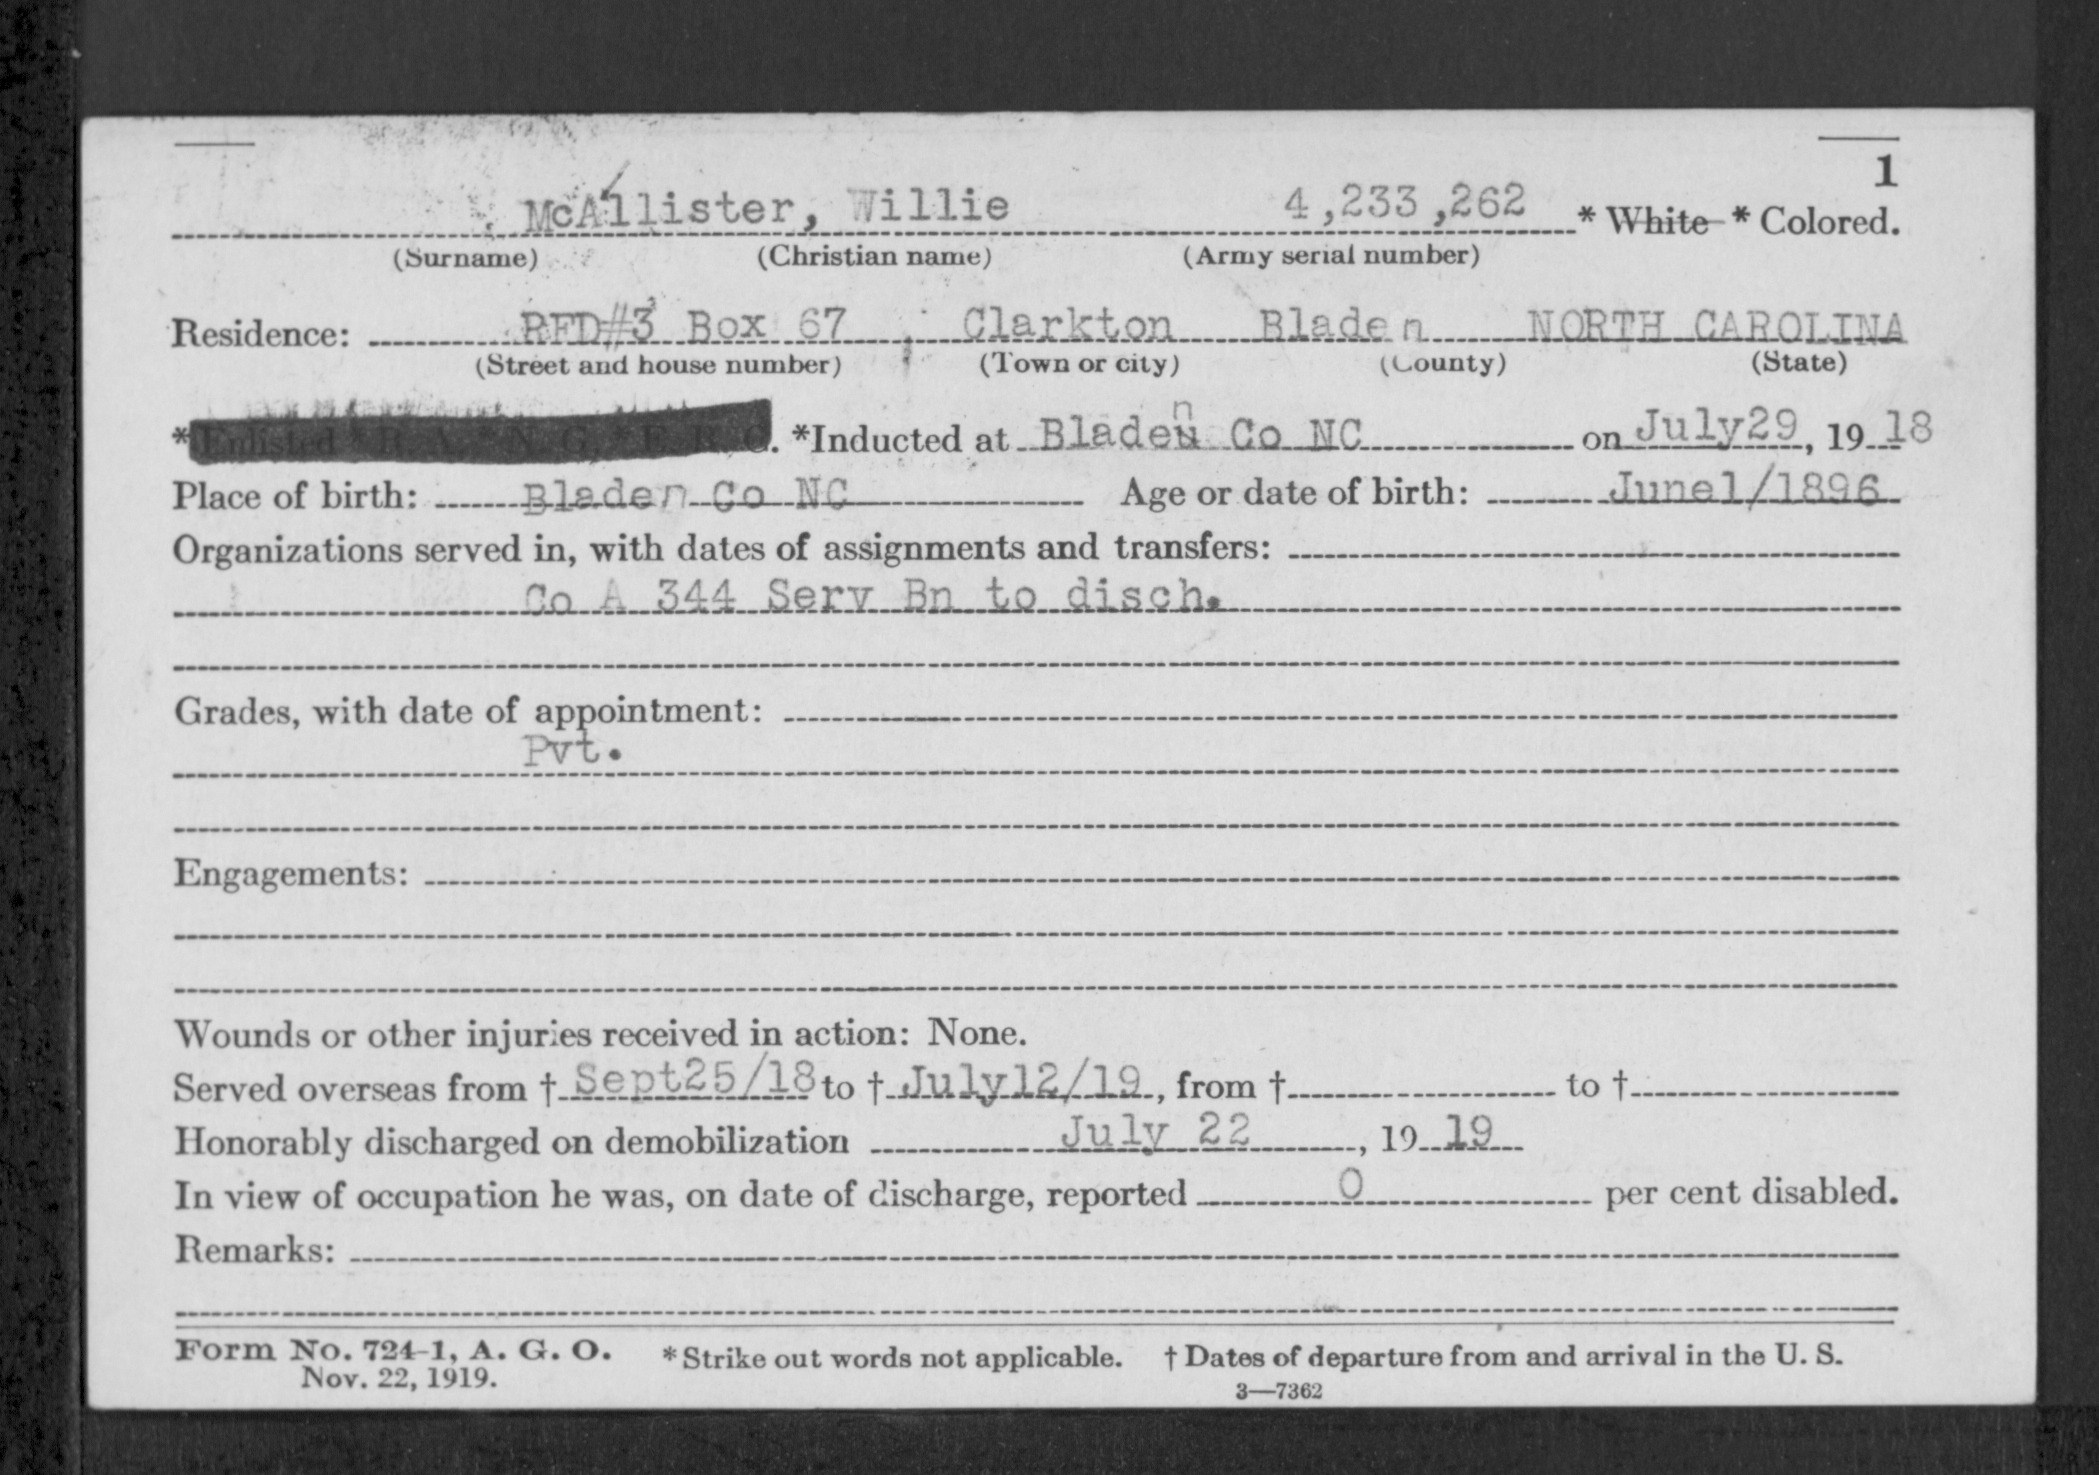 1
McAllister, Willie 4,233,262 * White * Colored.
(Surname) (Christian name) (Army serial number)
Residence: RFD#3 Box 67 Clarkton Bladen NORTH CAROLINA
(Street and house number) (Town or city) (County) (State)
*Enlisted * R. A. * N. G. * E. R. C. *Inducted at Bladen Co NC on July29, 19 18
Place of birth: Bladen Co NC Age or date of birth: June1/1896
Organizations served in, with dates of assignments and transfers:
Co A 344 Serv Bn to disch.
Grades, with date of appointment:
Pvt.
Engagements:
Wounds or other injuries received in action: None.
Served overseas from † Sept25/18 to † July12/19, from † to †
Honorably discharged on demobilization July 22, 19 19
In view of occupation he was, on date of discharge, reported 0 per cent disabled.
Remarks:
Form No. 724-1, A. G. O. * Strike out words not applicable. † Dates of departure from and arrival in the U. S.
Nov. 22, 1919.
3—7362